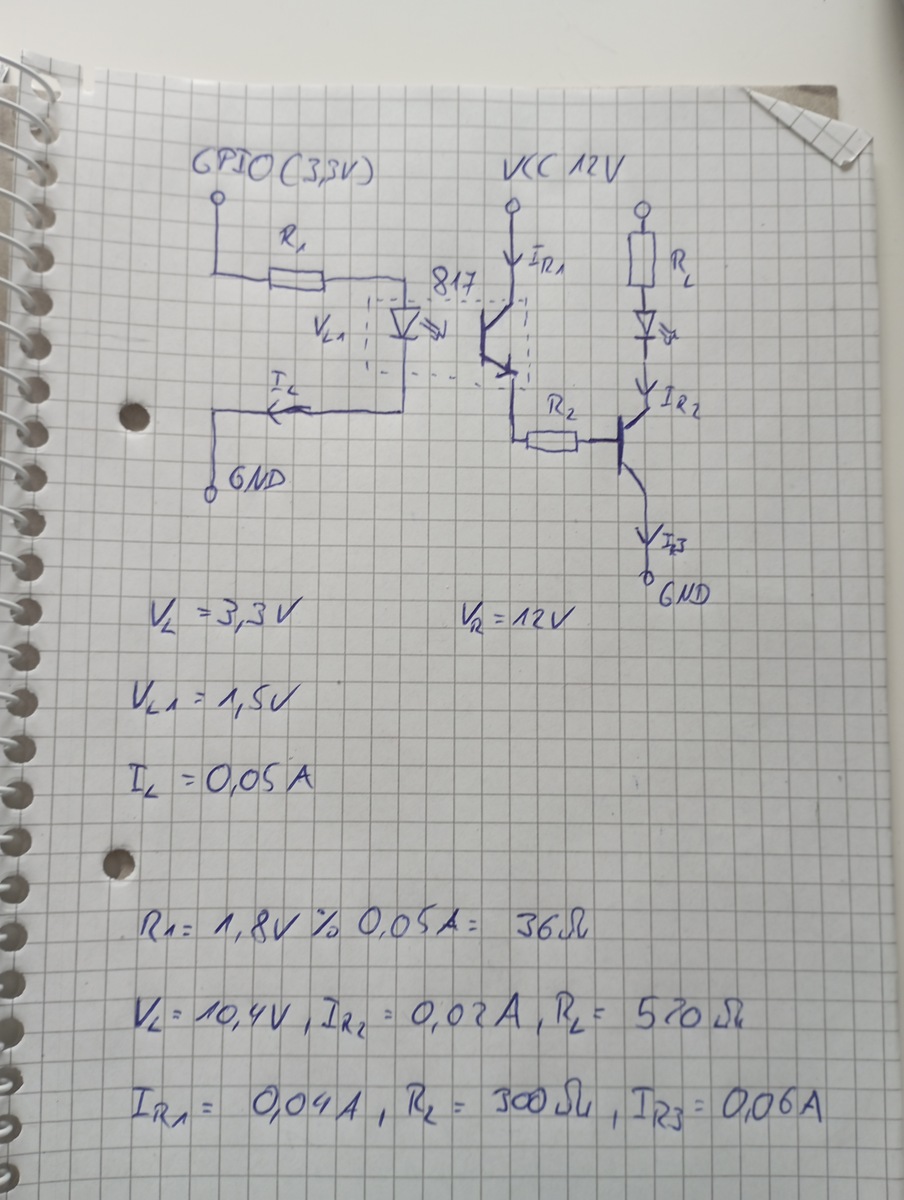 GPIO (3,3V)
VCC 12V
R1
IR1
RL
817
VL1
IL
R2
IR2
GND
IR3
GND
VL = 3,3V
VR = 12V
VL1 = 1,5V
IL = 0,05 A
R1 = 1,8V % 0,05A = 36Ω
VL = 10,4V, IR2 = 0,02A, RL = 520Ω
IR1 = 0,04A, R2 = 300Ω, IR3 = 0,06A